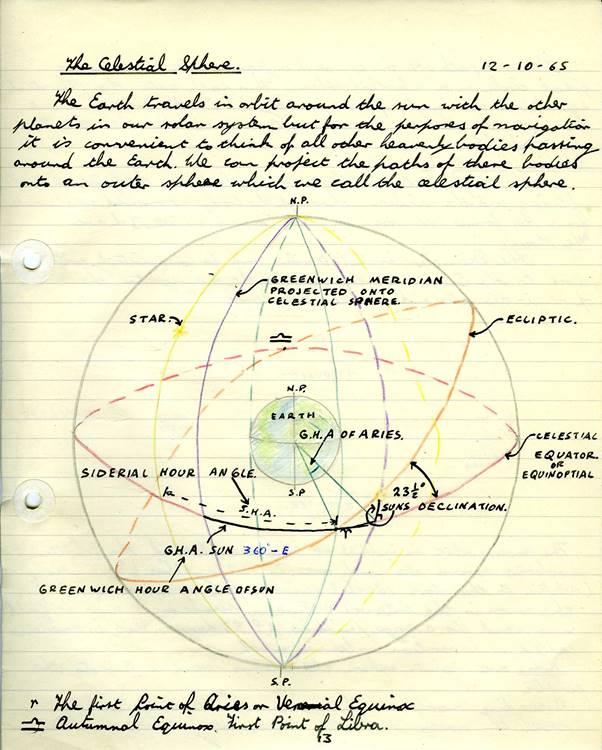 The Celestial Sphere.
12-10-65
The Earth travels in orbit around the sun with the other
planets in our solar system but for the purposes of navigation
it is convenient to think of all other heavenly bodies passing
around the Earth. We can project the paths of these bodies
onto an outer sphere which we call the celestial sphere.
N.P.
GREENWICH MERIDIAN
PROJECTED ONTO
CELESTIAL SPHERE.
STAR.
ECLIPTIC.
♎
N.P.
EARTH
G.H.A OF ARIES.
CELESTIAL
EQUATOR
OR
EQUINOPTIAL
SIDERIAL HOUR ANGLE.
S.P
23½°
SUNS DECLINATION.
S.H.A.
♈
G.H.A. SUN 360°-E
GREENWICH HOUR ANGLE OF SUN
S.P.
♈ The first Point of Aries or Vernial Equinox
♎ Autumnal Equinox. First Point of Libra.
13